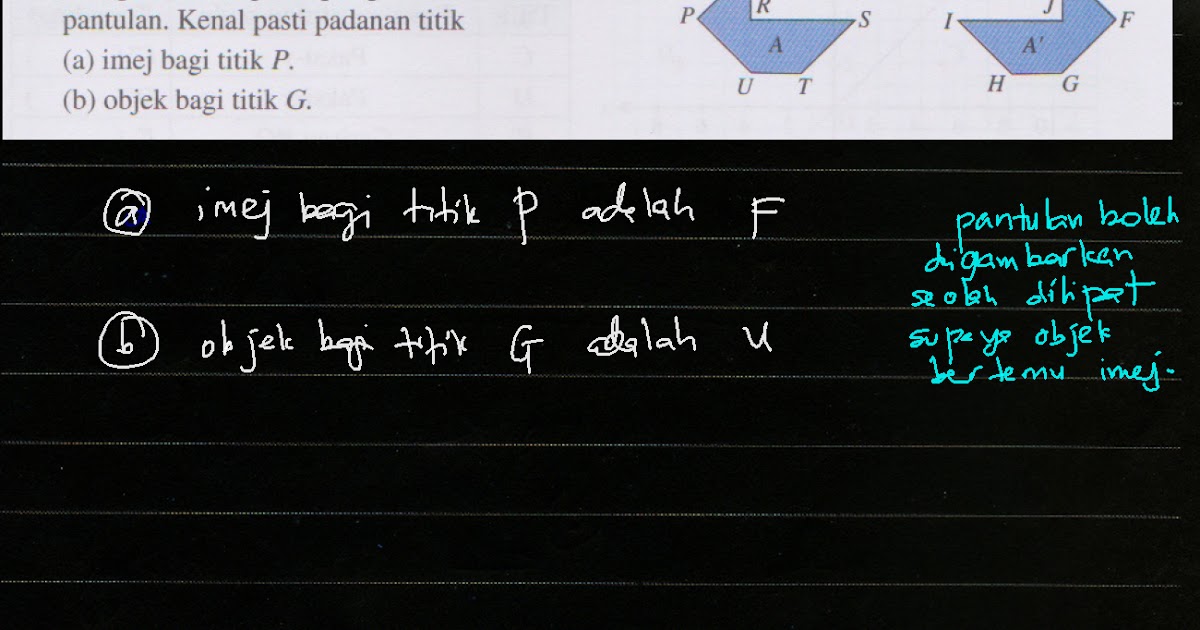 pantulan. Kenal pasti padanan titik
(a) imej bagi titik P.
(b) objek bagi titik G.
P R S A U T
I J F A' H G
(a) imej bagi titik P adalah F
(b) objek bagi titik G adalah U
pantulan boleh
digambarkan
seolah dilipat
supaya objek
bertemu imej.